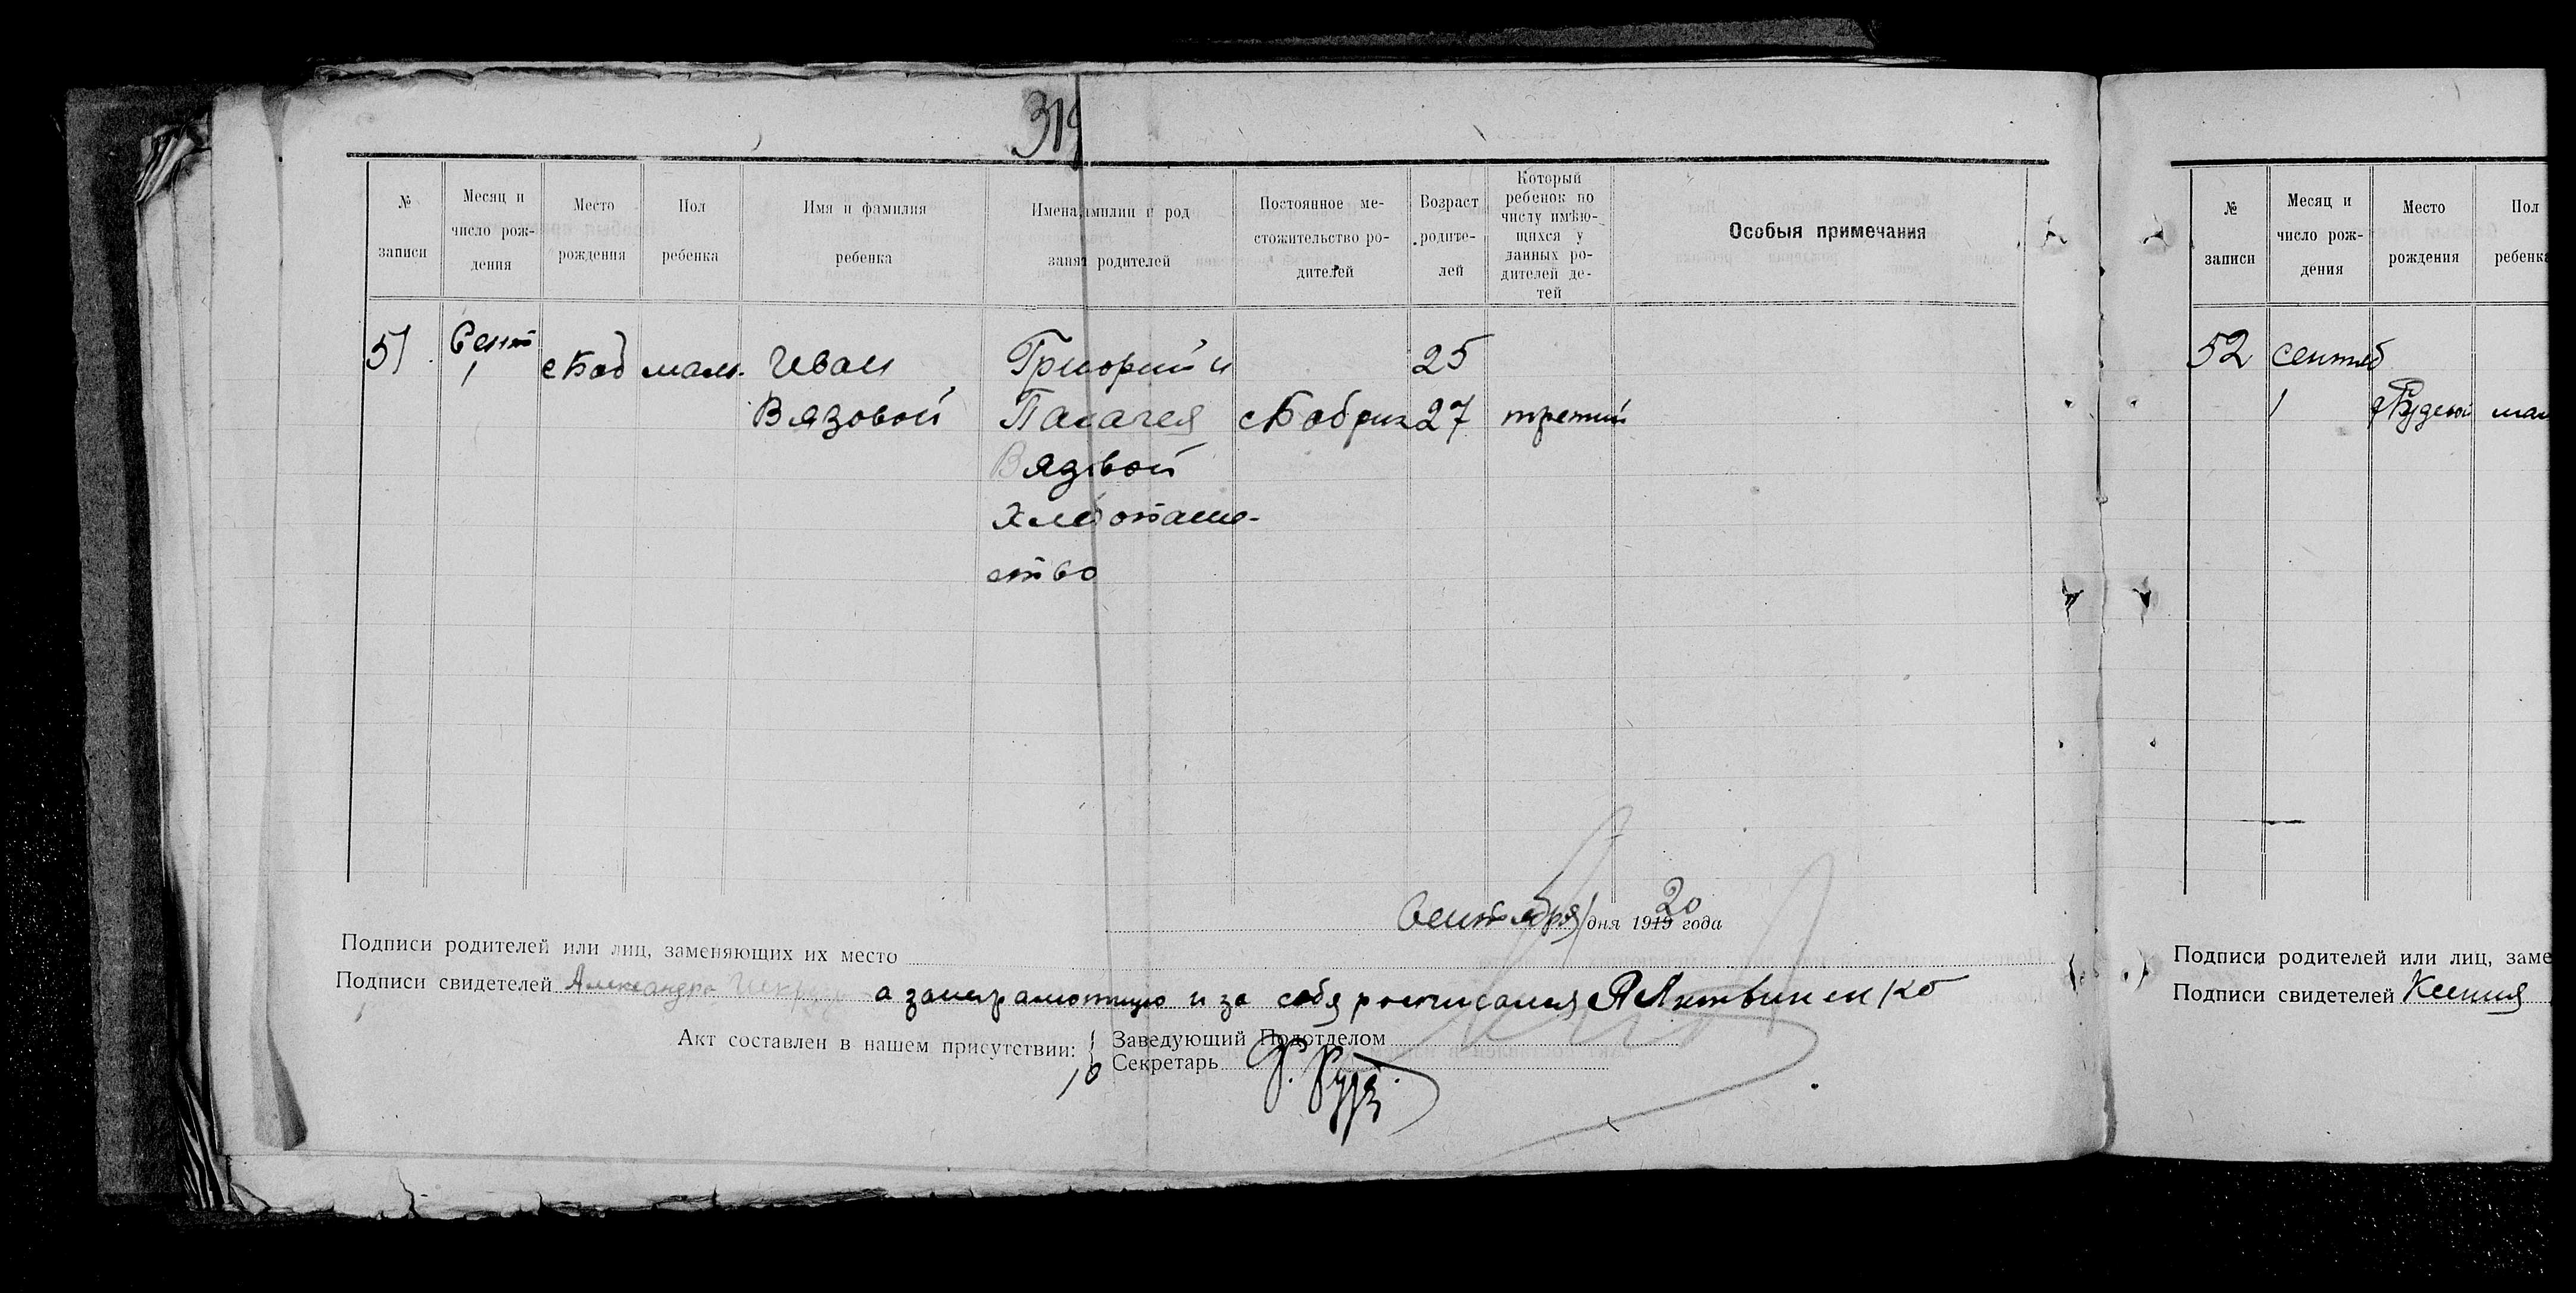 319
№ записи
Месяц и число рождения
Место рождения
Пол ребенка
Имя и фамилия ребенка
Имена, милии и род занят родителей
Постоянное местожительство родителей
Возраст родителей
Который ребенок по числу имѣющихся у данных родителей детей
Особыя примечания
51 Сент 1 с Боб мал. Иван Григорий и 25
Вязовой Палагея с Бобрик 27 третий
Вязвой
Хлебопаше-
ство
Сентября 1 дня 1919 20 года
Подписи родителей или лиц, заменяющих их место
Подписи свидетелей Александра а занеграмотную и за себя росписался Я Литвиненко
Акт составлен в нашем присутствии:
Заведующий Подотделом
Секретарь
№ записи
Месяц и число рождения
Место рождения
Пол ребенка
52 сентяб
1 мал
Подписи родителей или лиц, заме
Подписи свидетелей Ксения